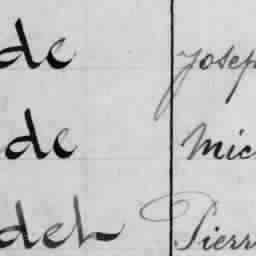 de Josep
de Mic
del Pierr